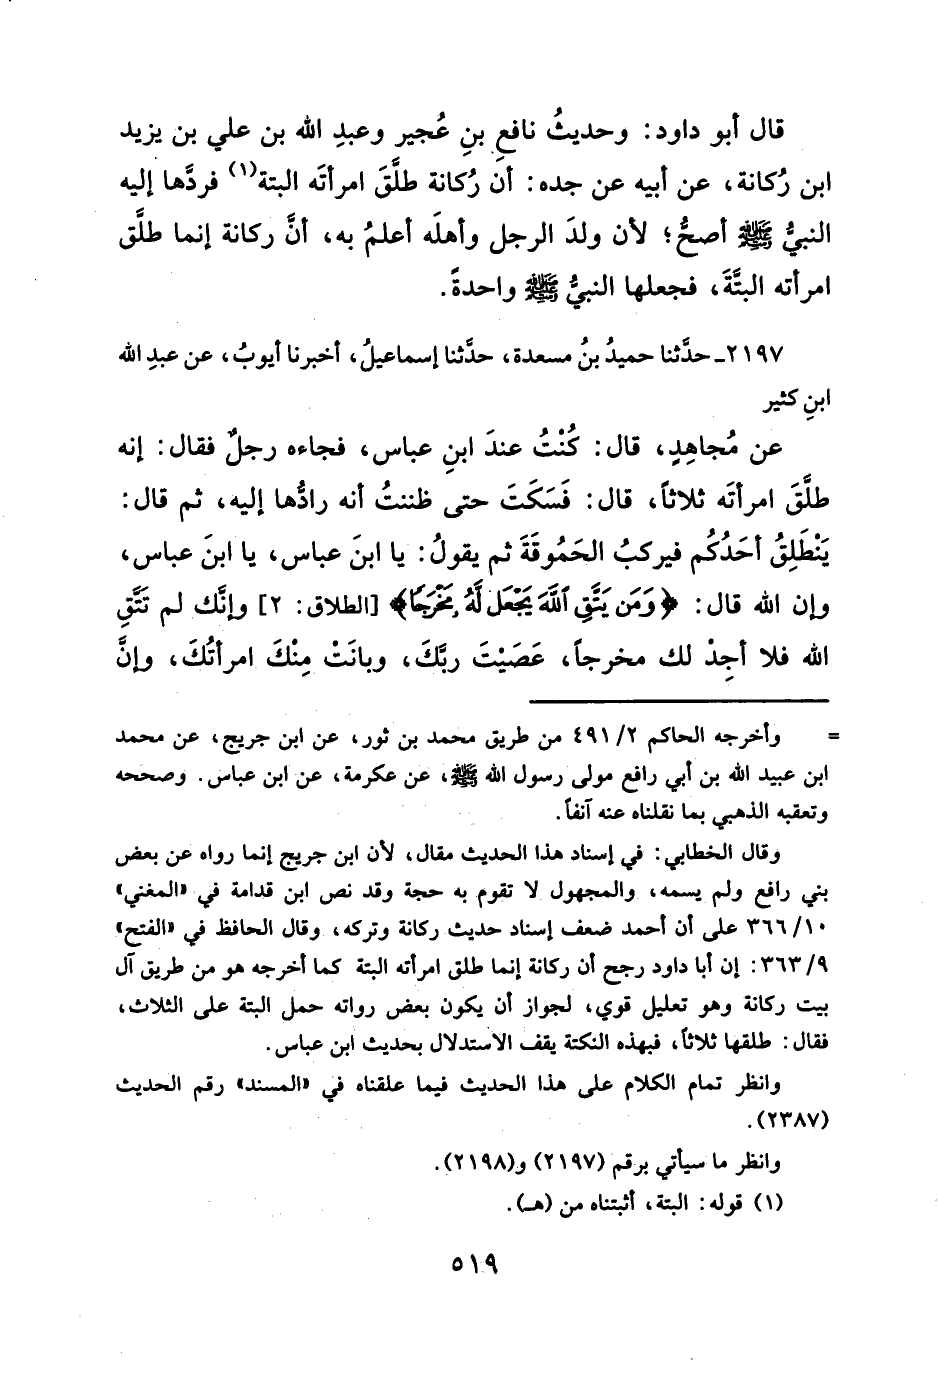 قال أبو داود: وحديثُ نافعِ بنِ عُجير وعبدِ الله بن علي بن يزيد
ابن رُكانة، عن أبيه عن جده: أن رُكانة طلَّقَ امرأتَه البتة(١) فردَّها إليه
النبيُّ ﷺ أصحُّ؛ لأن ولدَ الرجل وأهلَه أعلمُ به، أنَّ ركانة إنما طلَّق
امرأته البتَّةَ، فجعلها النبيُّ ﷺ واحدةً.
٢١٩٧ـ حدَّثنا حميدُ بنُ مسعدة، حدَّثنا إسماعيلُ، أخبرنا أيوبُ، عن عبدِ الله
ابنِ كثير
عن مُجاهِدٍ، قال: كُنْتُ عندَ ابنِ عباس، فجاءه رجلٌ فقال: إنه
طلَّقَ امرأتَه ثلاثاً، قال: فَسَكَتَ حتى ظننتُ أنه رادُّها إليه، ثم قال:
يَنْطَلِقُ أحَدُكُم فيركبُ الحَمُوقَةَ ثم يقولُ: يا ابنَ عباس، يا ابنَ عباس،
وإن الله قال: ﴿وَمَن يَتَّقِ ٱللَّهَ يَجْعَل لَّهُۥ مَخْرَجًا﴾ [الطلاق: ٢] وإنَّك لم تَتَّقِ
الله فلا أجِدْ لك مخرجاً، عَصَيْتَ ربَّكَ، وبانَتْ مِنْكَ امرأتُكَ، وإنَّ
= وأخرجه الحاكم ٢/ ٤٩١ من طريق محمد بن ثور، عن ابن جريج، عن محمد
ابن عبيد الله بن أبي رافع مولى رسول الله ﷺ، عن عكرمة، عن ابن عباس. وصححه
وتعقبه الذهبي بما نقلناه عنه آنفاً.
وقال الخطابي: في إسناد هذا الحديث مقال، لأن ابن جريج إنما رواه عن بعض
بني رافع ولم يسمه، والمجهول لا تقوم به حجة وقد نص ابن قدامة في «المغني»
١٠/ ٣٦٦ على أن أحمد ضعف إسناد حديث ركانة وتركه، وقال الحافظ في «الفتح»
٩/ ٣٦٣: إن أبا داود رجح أن ركانة إنما طلق امرأته البتة كما أخرجه هو من طريق آل
بيت ركانة وهو تعليل قوي، لجواز أن يكون بعض رواته حمل البتة على الثلاث،
فقال: طلقها ثلاثاً، فبهذه النكتة يقف الاستدلال بحديث ابن عباس.
وانظر تمام الكلام على هذا الحديث فيما علقناه في «المسند» رقم الحديث
(٢٣٨٧).
وانظر ما سيأتي برقم (٢١٩٧) و(٢١٩٨).
(١) قوله: البتة، أثبتناه من (هـ).
٥١٩